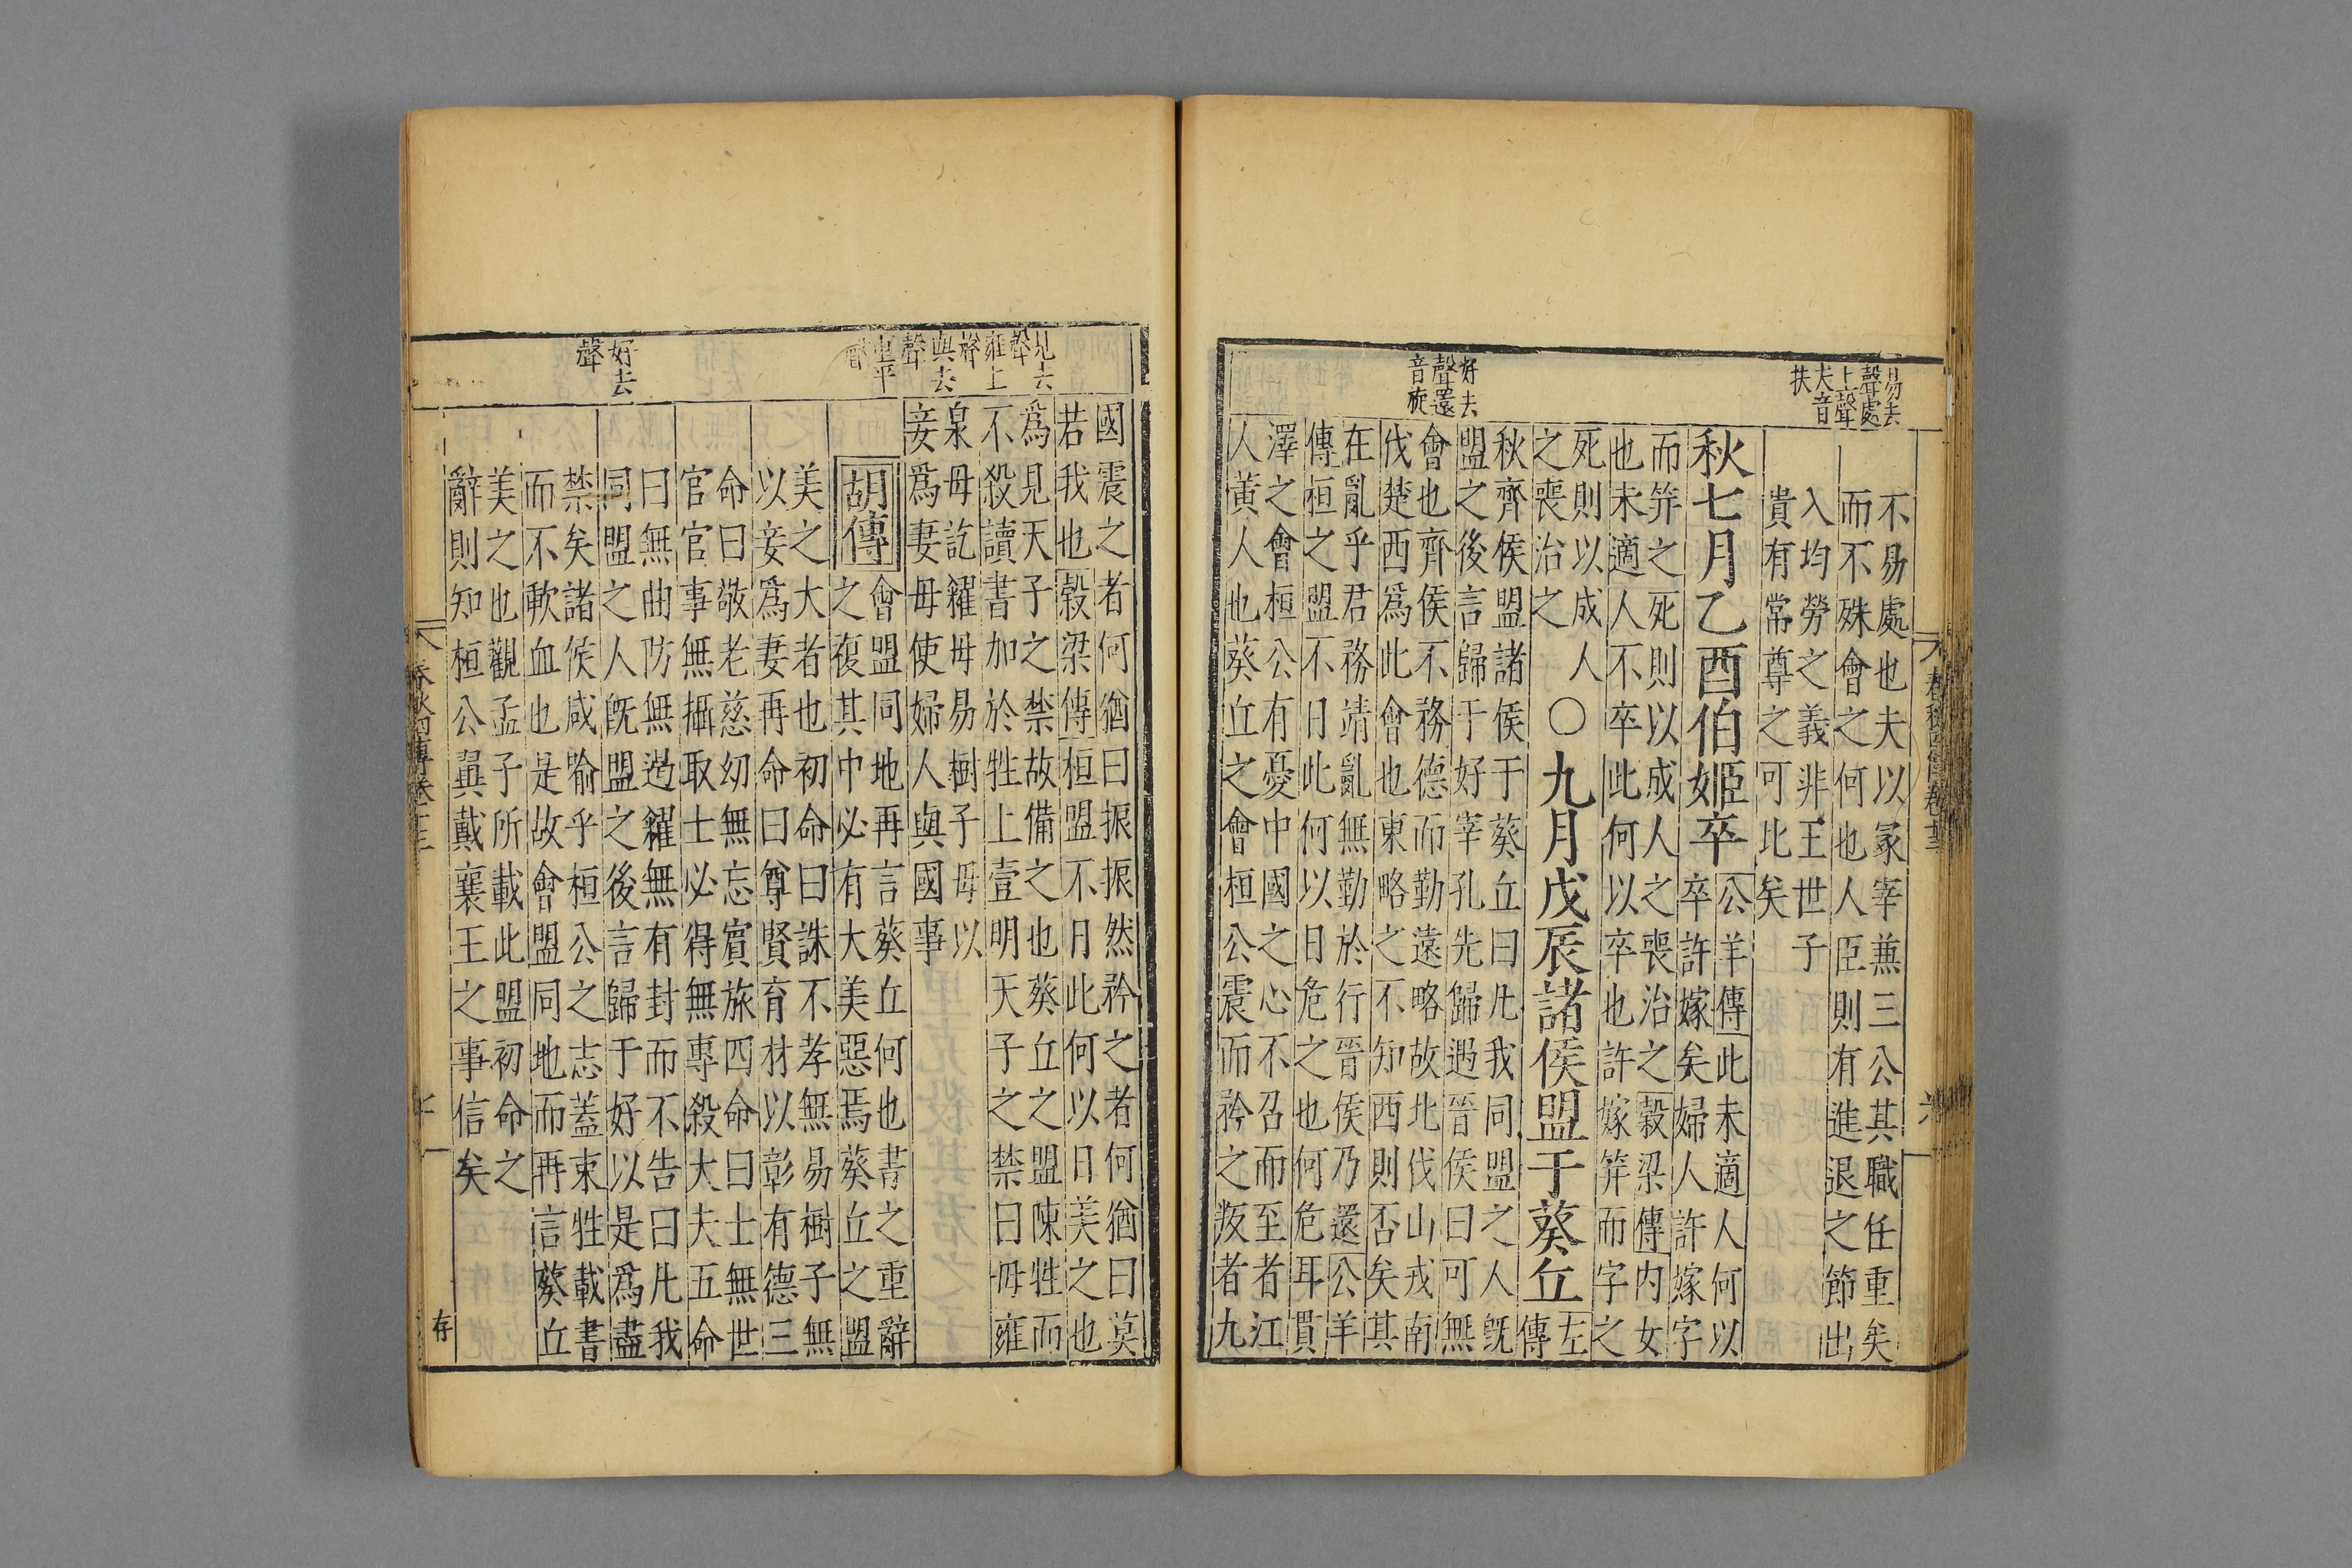 易去
聲處
上聲
夫音
扶
好去
聲還
音旋
不易處也夫以冢宰兼三公其職任重矣
而不殊會之何也人臣則有進退之節出
入均勞之義非王世子
貴有常尊之可比矣
秋七月乙酉伯姬卒
公羊傳此未適人何以
卒許嫁矣婦人許嫁字
而笄之死則以成人之喪治之穀梁傳内女
也未適人不卒此何以卒也許嫁笄而字之
死則以成人
之喪治之
○九月戊辰諸侯盟于葵丘
左
傳
秋齊侯盟諸侯于葵丘曰凡我同盟之人旣
盟之後言歸于好宰孔先歸遇晉侯曰可無
會也齊侯不務德而勤遠略故北伐山戎南
伐楚西爲此會也東略之不知西則否矣其
在亂乎君務靖亂無勤於行晉侯乃還公羊
傳桓之盟不日此何以日危之也何危耳貫
澤之會桓公有憂中國之心不召而至者江
人黃人也葵丘之會桓公震而矜之叛者九
凡去
聲
雍上
聲
與去
聲
重平
聲
好去
聲
國震之者何猶曰振振然矜之者何猶曰莫
若我也穀梁傳桓盟不日此何以日美之也
爲見天子之禁故備之也葵丘之盟陳牲而
不殺讀書加於牲上壹明天子之禁曰毋雍
泉毋訖糴毋易樹子毋以
妾爲妻毋使婦人與國事
胡傳
會盟同地再言葵丘何也書之重辭
之複其中必有大美惡焉葵丘之盟
美之大者也初命曰誅不孝無易樹子無
以妾爲妻再命曰尊賢育材以彰有德三
命曰敬老慈幼無忘賓旅四命曰士無世
官官事無攝取士必得無專殺大夫五命
曰無曲防無遏糴無有封而不告曰凡我
同盟之人旣盟之後言歸于好以是爲盡
禁矣諸侯咸喻乎桓公之志蓋束牲載書
而不歃血也是故會盟同地而再言葵丘
美之也觀孟子所載此盟初命之
辭則知桓公翼戴襄王之事信矣
存